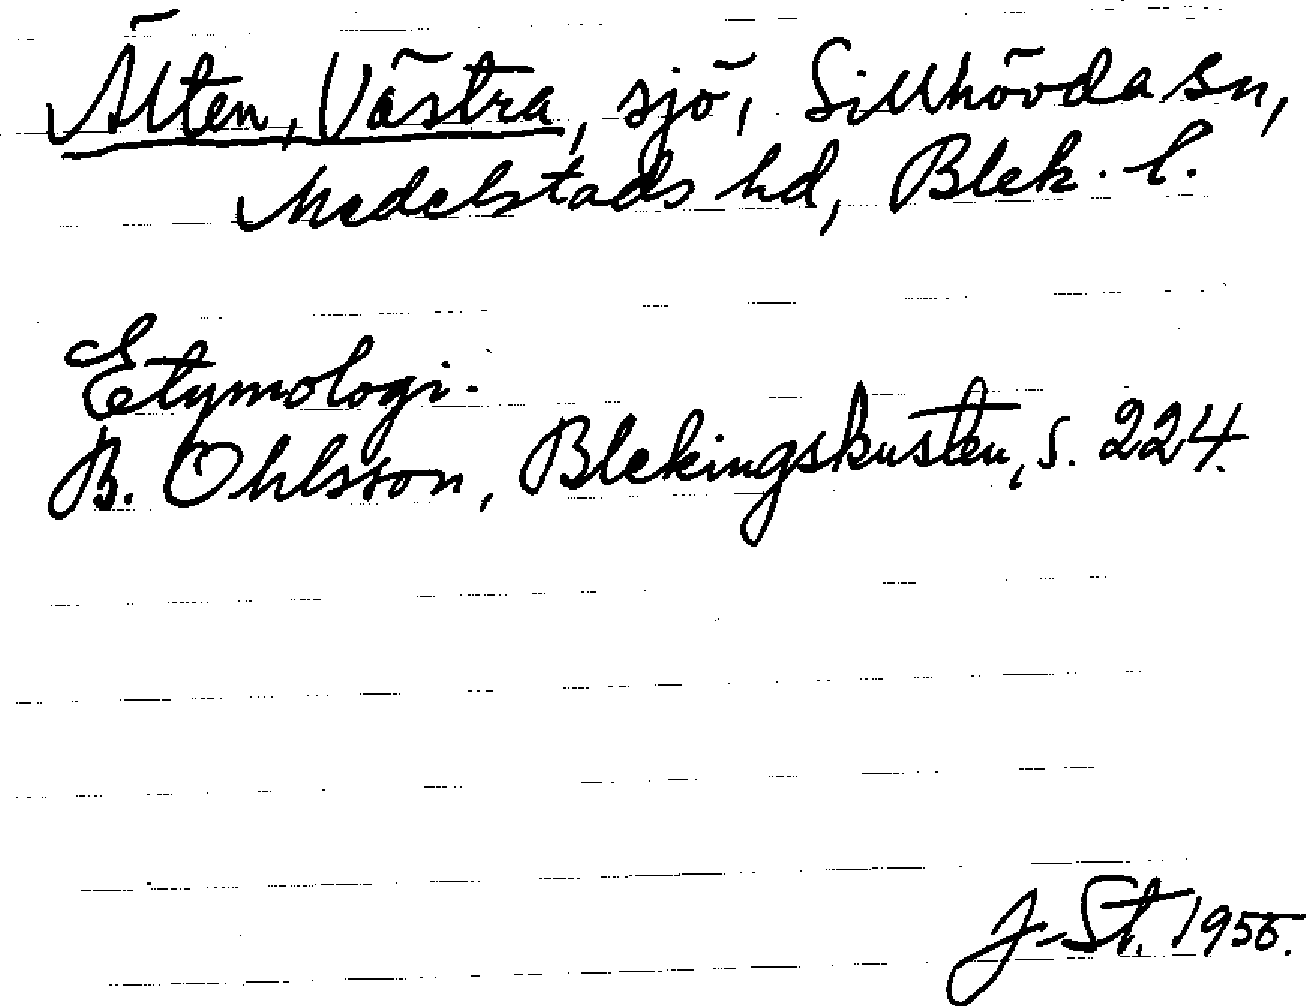 Älten, Västra, sjö, Sillhövda sn,
Medelstads hd, Blek. l.
Etymologi.
B. Ohlsson, Blekingskusten, s. 224.
J-St. 1956.